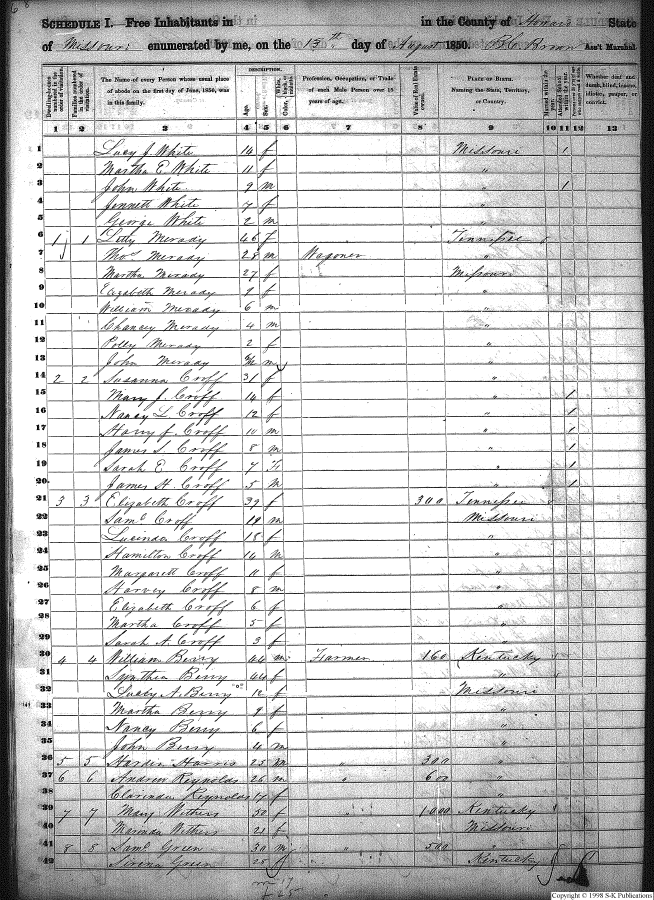 SCHEDULE I. Free Inhabitants in in the County of Howard State
of Missouri enumerated by me, on the 13th day of August 1850. B.C. Brown Ass't Marshal.
DESCRIPTION.
Dwelling-houses numbered in the order of visitation.
Families numbered in the order of visitation.
The Name of every Person whose usual place of abode on the first day of June, 1850, was in this family.
Age.
Sex.
White, black, or mulatto.
Color,
Profession, Occupation, or Trade of each Male Person over 15 years of age.
Value of Real Estate owned.
PLACE OF BIRTH. Naming the State, Territory, or Country.
Married within the year.
Attended School within the year.
Whether deaf and dumb, blind, insane, idiotic, pauper, or convict.
1 2 3 4 5 6 7 8 9 10 11 12 13
1 Lucy J. White 14 f Missouri 1
2 Martha E. White 11 f "
3 John White 9 m " 1
4 Jennett White 7 f "
5 George White 2 m "
6 1 1 Letty Merady 46 f Tennessee
7 Thos Merady 28 m Wagoner "
8 Martha Merady 27 f Missouri
9 Elizabeth Merady 9 f "
10 William Merady 6 m "
11 Chancey Merady 4 m "
12 Polly Merady 2 f "
13 John Merady m "
14 2 2 Susanna Croff 31 f "
15 Mary J. Croff 14 f " 1
16 Nancy L. Croff 12 f " 1
17 Harry f. Croff 10 m " 1
18 James S. Croff 8 m " 1
19 Sarah E Croff 7 f " 1
20 James H. Croff 5 M " 1
21 3 3 Elizabeth Croff 39 f 300 Tennessee
22 Saml Croff 19 m Missouri
23 Lucinda Croff 18 f "
24 Hamilton Croff 14 m "
25 Margarett Croff 11 f "
26 Harvey Croff 8 m "
27 Elizabeth Croff 6 f "
28 Martha Croff 5 f "
29 Sarah A. Croff 3 f "
30 4 4 William Berry 44 m Farmer 160 Kentucky
31 Synthia Berry 44 f "
32 Lucy A. Berry 12 f Missouri
33 Martha Berry 9 f "
34 Nancy Berry 6 f "
35 John Berry 4 m "
36 5 5 Hardin Harris 25 m " 300 "
37 6 6 Andrew Reynolds 26 m " 600 "
38 Clarinda Reynolds 17 f "
39 7 7 Mary Withers 50 f " 1000 Kentucky
40 Marinda Withers 21 f Missouri
41 8 8 Saml Green 30 m " 500 "
42 Sirena Green 25 f Kentucky
m 17
f 25
Copyright © 1998 S-K Publications